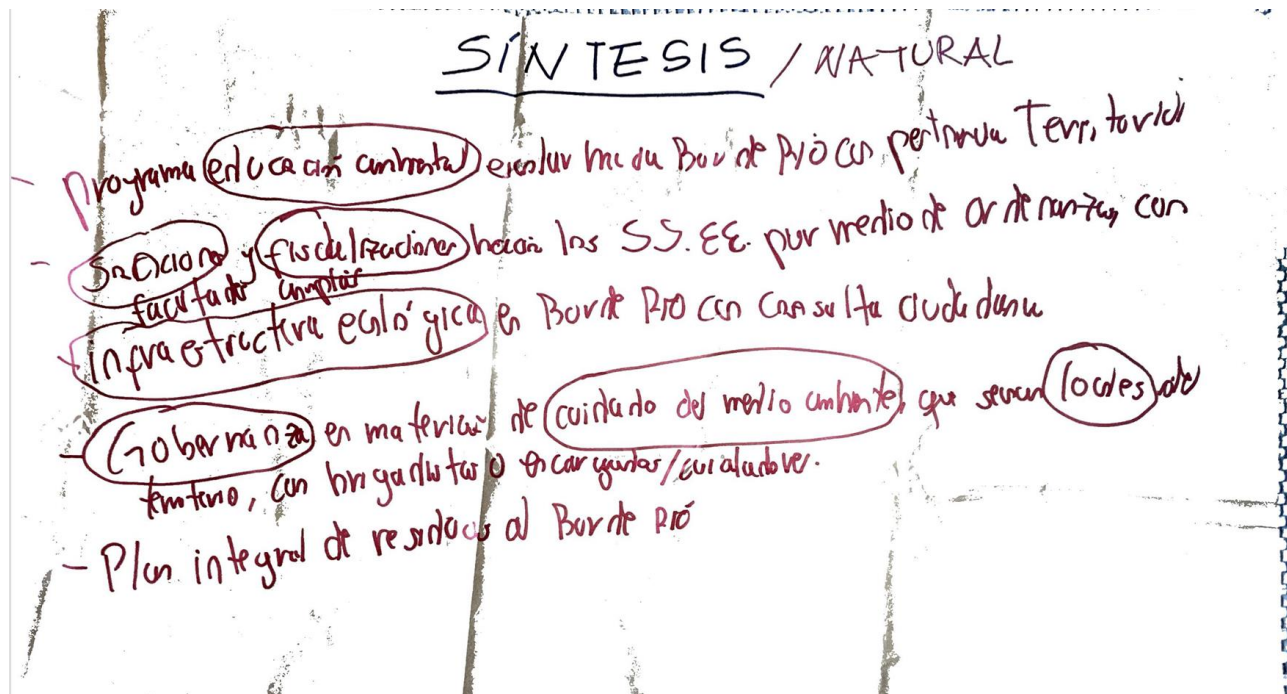 SÍNTESIS / NATURAL
- Programa educación ambiental escolar Borde Río con pertinencia Territorial
- Sanciones y fiscalizaciones hacia los SS.EE. por medio de ordenanzas, con
facultado cumplir
- infraestructura ecológica en Borde Río con consulta ciudadana
- Gobernanza en materias de cuidado del medio ambiente, que sean locales del
territorio, con brigadistas o encargadas/cuidadores.
- Plan integral de residuos al Borde Río